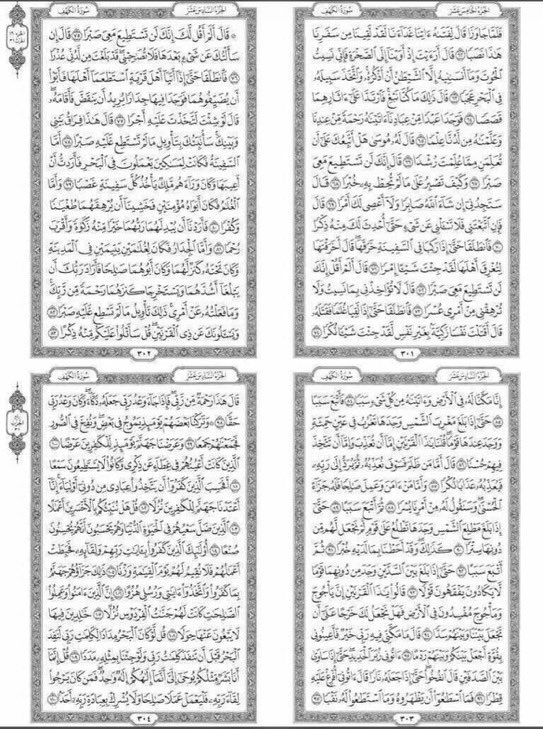 الجزء الخامس عشر سورة الكهف
فلما جاوزا قال لفتىه ءاتنا غداءنا لقد لقينا من سفرنا
هذا نصبا ٦٢ قال أرءيت إذ أوينا إلى الصخرة فإني نسيت
الحوت وما أنسىنيه إلا الشيطن أن أذكره واتخذ سبيله
في البحر عجبا ٦٣ قال ذلك ما كنا نبغ فارتدا على ءاثارهما
قصصا ٦٤ فوجدا عبدا من عبادنا ءاتينه رحمة من عندنا
وعلمنه من لدنا علما ٦٥ قال له موسى هل أتبعك على أن
تعلمن مما علمت رشدا ٦٦ قال إنك لن تستطيع معي
صبرا ٦٧ وكيف تصبر على ما لم تحط به خبرا ٦٨ قال
ستجدني إن شاء الله صابرا ولا أعصي لك أمرا ٦٩ قال
فإن اتبعتني فلا تسءلني عن شيء حتى أحدث لك منه ذكرا
٧٠ فانطلقا حتى إذا ركبا في السفينة خرقها قال أخرقتها
لتغرق أهلها لقد جئت شيءا إمرا ٧١ قال ألم أقل إنك
لن تستطيع معي صبرا ٧٢ قال لا تؤاخذني بما نسيت ولا
ترهقني من أمري عسرا ٧٣ فانطلقا حتى إذا لقيا غلما فقتله
قال أقتلت نفسا زكية بغير نفس لقد جئت شيءا نكرا ٧٤
٣٠١
الجزء السادس عشر سورة الكهف
قال ألم أقل لك إنك لن تستطيع معي صبرا ٧٥ قال إن
سألتك عن شيء بعدها فلا تصحبني قد بلغت من لدني عذرا
٧٦ فانطلقا حتى إذا أتيا أهل قرية استطعما أهلها فأبوا
أن يضيفوهما فوجدا فيها جدارا يريد أن ينقض فأقامه
قال لو شئت لتخذت عليه أجرا ٧٧ قال هذا فراق بيني
وبينك سأنبئك بتأويل ما لم تستطع عليه صبرا ٧٨ أما
السفينة فكانت لمسكين يعملون في البحر فأردت أن
أعيبها وكان وراءهم ملك يأخذ كل سفينة غصبا ٧٩ وأما
الغلم فكان أبواه مؤمنين فخشينا أن يرهقهما طغينا
وكفرا ٨٠ فأردنا أن يبدلهما ربهما خيرا منه زكوة وأقرب
رحما ٨١ وأما الجدار فكان لغلمين يتيمين في المدينة
وكان تحته كنز لهما وكان أبوهما صلحا فأراد ربك أن
يبلغا أشدهما ويستخرجا كنزهما رحمة من ربك
وما فعلته عن أمري ذلك تأويل ما لم تسطع عليه صبرا ٨٢
ويسءلونك عن ذي القرنين قل سأتلوا عليكم منه ذكرا ٨٣
٣٠٢
الجزء السادس عشر سورة الكهف
إنا مكنا له في الأرض وءاتينه من كل شيء سببا ٨٤ فأتبع سببا
٨٥ حتى إذا بلغ مغرب الشمس وجدها تغرب في عين حمئة
ووجد عندها قوما قلنا يذا القرنين إما أن تعذب وإما أن تتخذ
فيهم حسنا ٨٦ قال أما من ظلم فسوف نعذبه ثم يرد إلى ربه
فيعذبه عذابا نكرا ٨٧ وأما من ءامن وعمل صلحا فله جزاء
الحسنى وسنقول له من أمرنا يسرا ٨٨ ثم أتبع سببا ٨٩ حتى
إذا بلغ مطلع الشمس وجدها تطلع على قوم لم نجعل لهم من
دونها سترا ٩٠ كذلك وقد أحطنا بما لديه خبرا ٩١ ثم
أتبع سببا ٩٢ حتى إذا بلغ بين السدين وجد من دونهما قوما
لا يكادون يفقهون قولا ٩٣ قالوا يذا القرنين إن يأجوج
ومأجوج مفسدون في الأرض فهل نجعل لك خرجا على أن
تجعل بيننا وبينهم سدا ٩٤ قال ما مكني فيه ربي خير فأعينوني
بقوة أجعل بينكم وبينهم ردما ٩٥ ءاتوني زبر الحديد حتى إذا ساوى
بين الصدفين قال انفخوا حتى إذا جعله نارا قال ءاتوني أفرغ عليه
قطرا ٩٦ فما اسطعوا أن يظهروه وما استطعوا له نقبا ٩٧
٣٠٣
الجزء السادس عشر سورة الكهف
قال هذا رحمة من ربي فإذا جاء وعد ربي جعله دكاء وكان وعد ربي
حقا ٩٨ وتركنا بعضهم يومئذ يموج في بعض ونفخ في الصور
فجمعنهم جمعا ٩٩ وعرضنا جهنم يومئذ للكفرين عرضا ١٠٠
الذين كانت أعينهم في غطاء عن ذكري وكانوا لا يستطيعون سمعا
١٠١ أفحسب الذين كفروا أن يتخذوا عبادي من دوني أولياء إنا
أعتدنا جهنم للكفرين نزلا ١٠٢ قل هل ننبئكم بالأخسرين أعملا
١٠٣ الذين ضل سعيهم في الحيوة الدنيا وهم يحسبون أنهم يحسنون
صنعا ١٠٤ أولئك الذين كفروا بءايت ربهم ولقائه فحبطت
أعملهم فلا نقيم لهم يوم القيمة وزنا ١٠٥ ذلك جزاؤهم جهنم
بما كفروا واتخذوا ءايتي ورسلي هزوا ١٠٦ إن الذين ءامنوا وعملوا
الصلحت كانت لهم جنت الفردوس نزلا ١٠٧ خلدين فيها
لا يبغون عنها حولا ١٠٨ قل لو كان البحر مدادا لكلمت ربي لنفد
البحر قبل أن تنفد كلمت ربي ولو جئنا بمثله مددا ١٠٩ قل إنما
أنا بشر مثلكم يوحى إلي أنما إلهكم إله وحد فمن كان يرجوا
لقاء ربه فليعمل عملا صلحا ولا يشرك بعبادة ربه أحدا ١١٠
٣٠٤